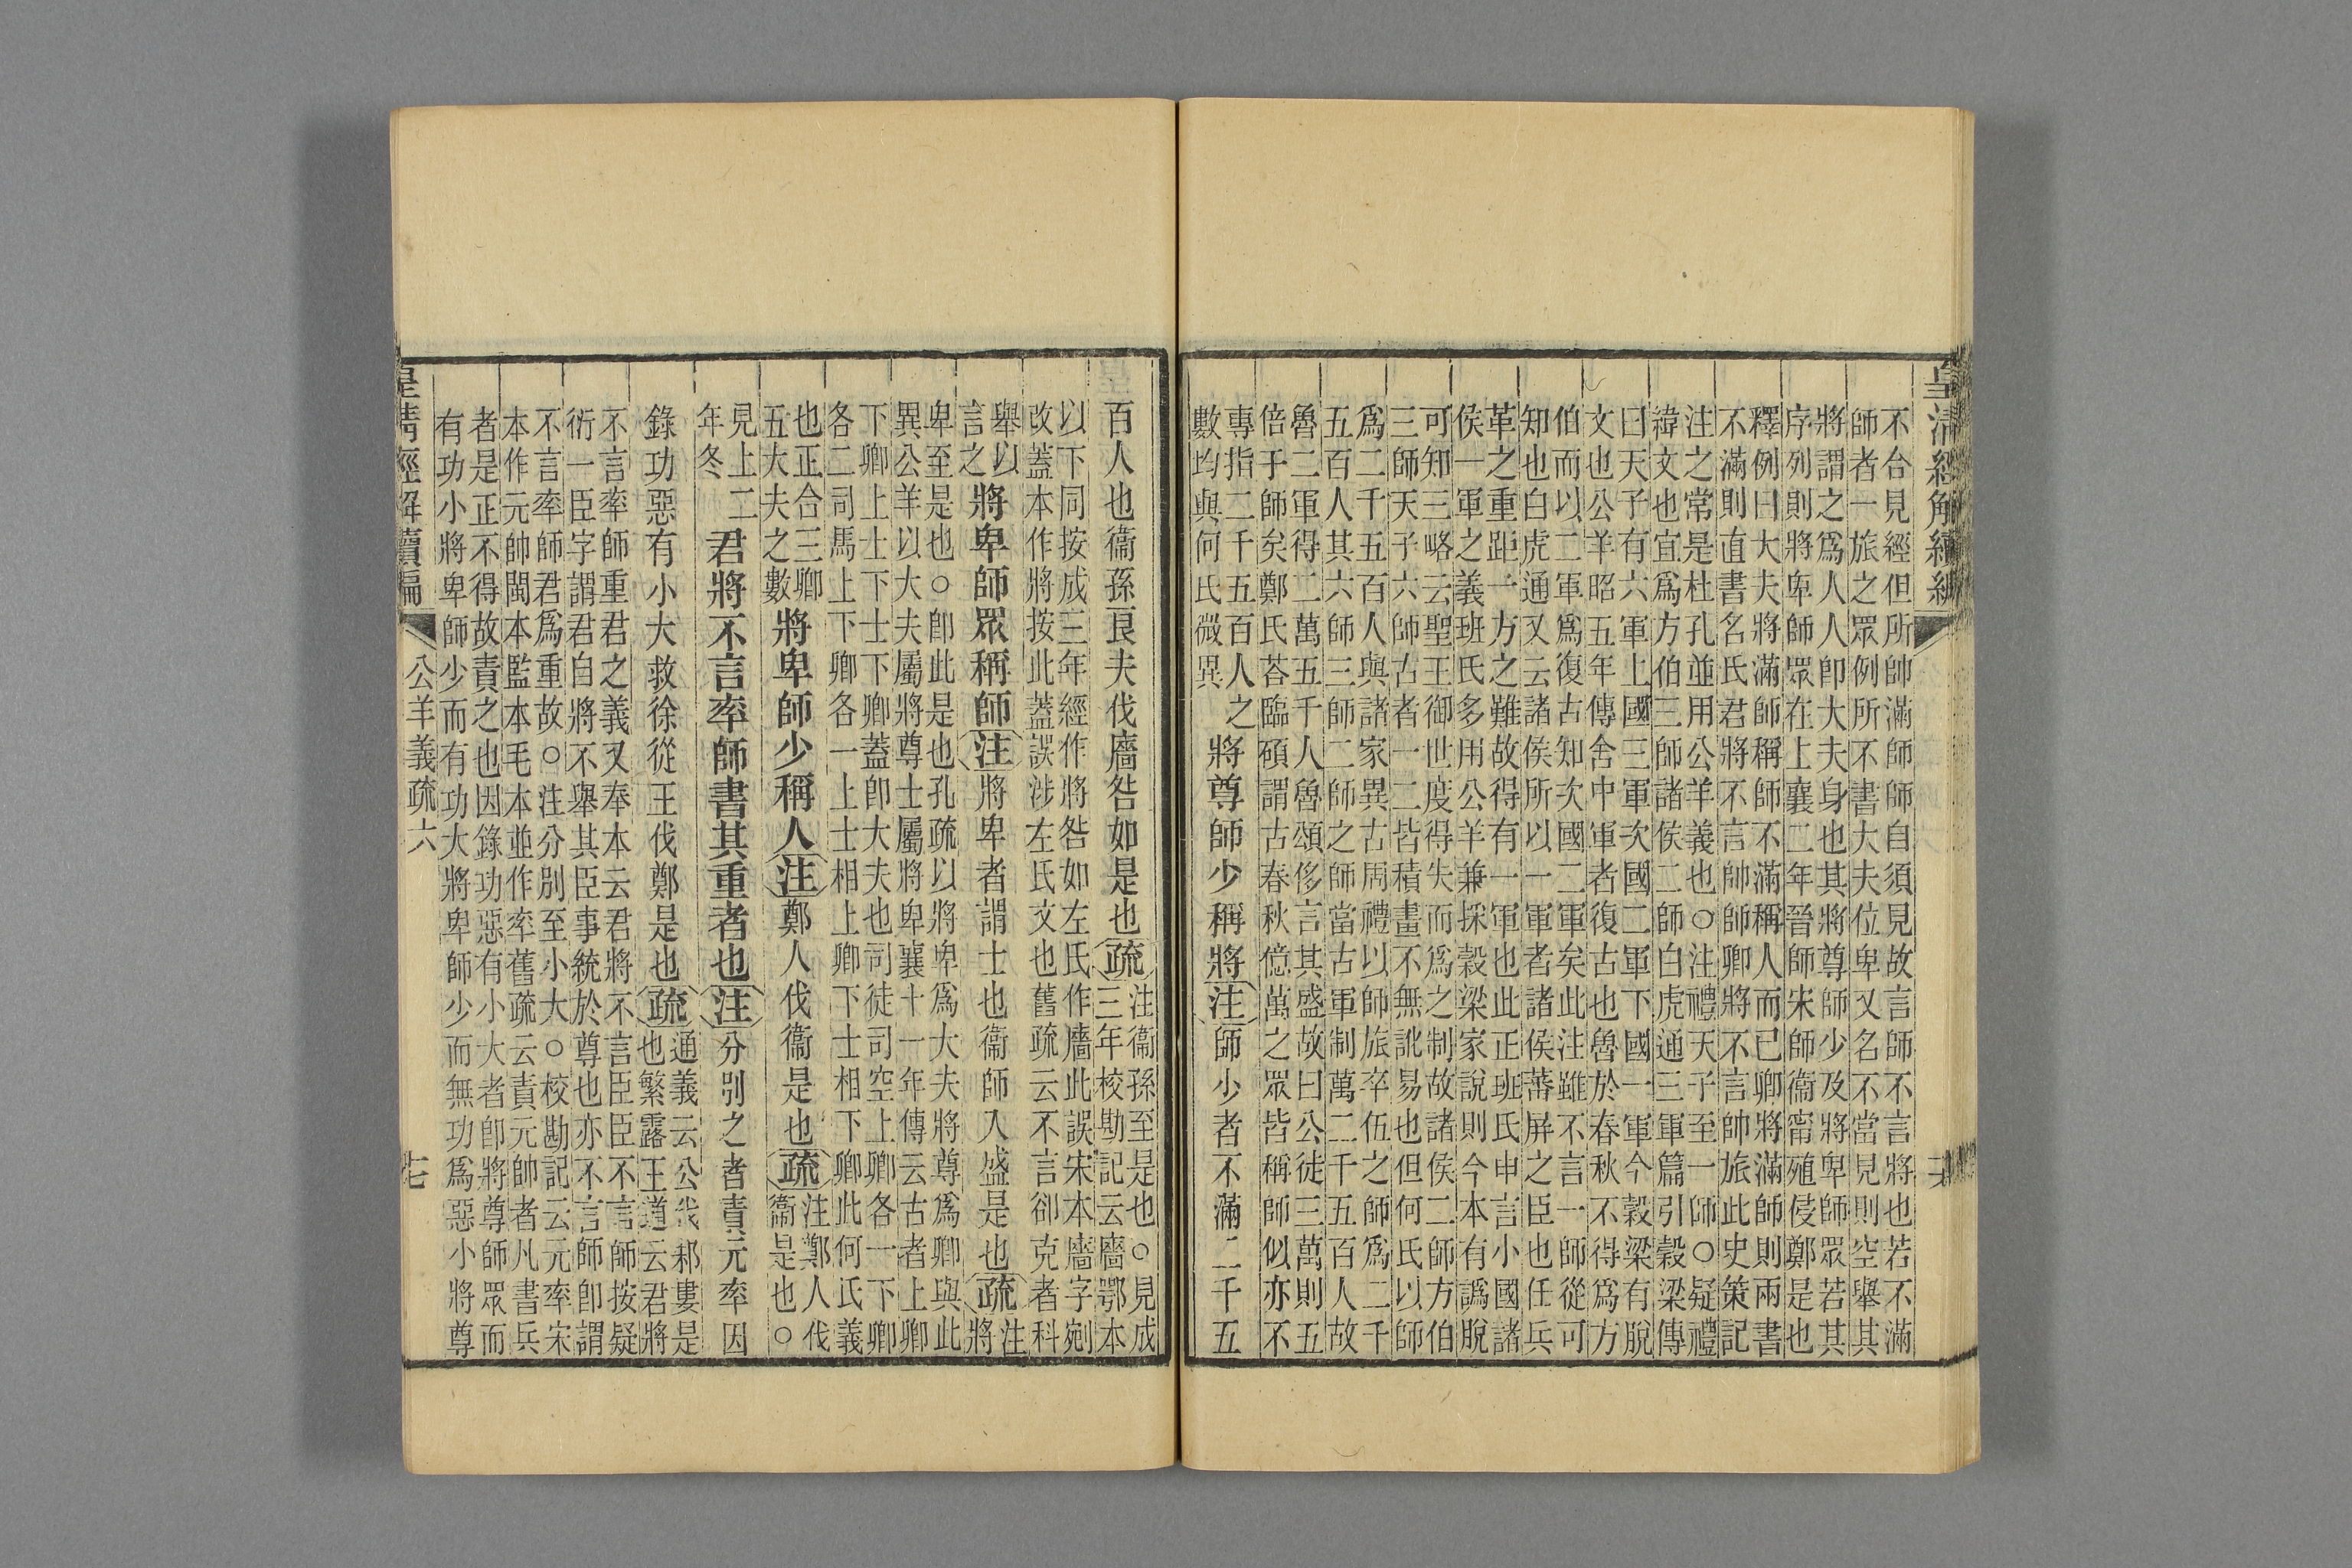 皇清經解續編
不合見經但所帥滿師師自須見故言師不言將也若不滿
師者一旅之眾例所不書大夫位卑又名不當見則空舉其
將謂之爲人人卽大夫身也其將尊師少及將卑師眾若其
序列則將卑師眾在上襄二年晉師宋師衞甯殖侵鄭是也
釋例曰大夫將滿師稱師不滿稱人而已卿將滿師則兩書
不滿則直書名氏君將不言帥師卿將不言帥旅此史策記
注之常是杜孔並用公羊義也○注禮天子至一師○疑禮
緯文也宜爲方伯三師諸侯二師白虎通三軍篇引穀梁傳
曰天子有六軍上國三軍次國二軍下國一軍今穀梁有脫
文也公羊昭五年傳舍中軍者復古也魯於春秋不得爲方
伯而以二軍爲復古知次國二軍矣此注雖不言一師從可
知也白虎通又云諸侯所以一軍者諸侯蕃屏之臣也任兵
革之重距一方之難故得有一軍也此正班氏申言小國諸
侯一軍之義班氏多用公羊兼採穀梁家說則今本有譌脫
可知三略云聖王御世度得失而爲之制故諸侯二師方伯
三師天子六師古者一二皆積畫不無訛易也但何氏以師
爲二千五百人與諸家異古周禮以師旅卒伍之師爲二千
五百人其六師三師二師之師當古軍制萬二千五百人故
魯二軍得二萬五千人魯頌侈言其盛故曰公徒三萬則五
倍于師矣鄭氏荅臨碩謂古春秋億萬之眾皆稱師似亦不
專指二千五百人之
數均與何氏微異
將尊師少稱將注師少者不滿二千五
百人也衞孫良夫伐廧咎如是也疏
注衞孫至是也○見成
三年校勘記云廧鄂本
以下同按成三年經作將咎如左氏作廧此誤宋本廧字剜
改蓋本作將按此蓋誤涉左氏文也舊疏云不言卻克者科
舉以
言之
將卑師眾稱師注將卑者謂士也衞師入盛是也疏
注
將
卑至是也○卽此是也孔疏以將卑爲大夫將尊爲卿與此
異公羊以大夫屬將尊士屬將卑襄十一年傳云古者上卿
下卿上士下士下卿蓋卽大夫也司徒司空上卿各一下卿
各二司馬上下卿各一上士相上卿下士相下卿此何氏義
也正合三卿
五大夫之數
將卑師少稱人注鄭人伐衞是也疏
注鄭人伐
衞是也○
見上二
年冬
君將不言率師書其重者也注分別之者責元率因
錄功惡有小大救徐從王伐鄭是也疏
通義云公伐邾婁是
也繁露王道云君將
不言率師重君之義又奉本云君將不言臣臣不言師按疑
衍一臣字謂君自將不舉其臣事統於尊也亦不言師卽謂
不言率師君爲重故○注分別至小大○校勘記云元率宋
本作元帥閩本監本毛本並作率舊疏云責元帥者凡書兵
者是正不得故責之也因錄功惡有小大者卽將尊師眾而
有功小將卑師少而有功大將卑師少而無功爲惡小將尊
皇清經解續編
公羊義疏六
七